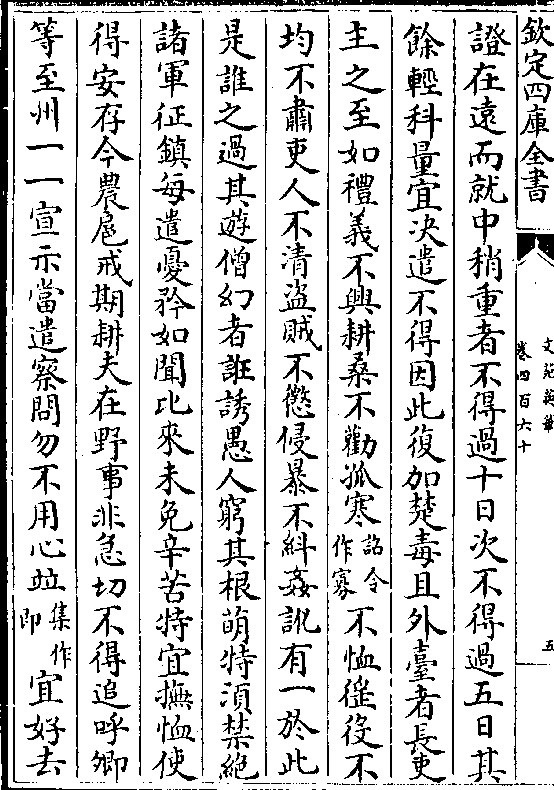 欽定四庫全書
文苑英華
卷四百六十
五
證在遠而就中稍重者不得過十日次不得過五日其
餘輕科量宜決遣不得因此復加楚毒且外臺者長吏
主之至如禮義不興耕桑不勸孤寒詔令作寡不恤徭役不
均不肅吏人不清盜賊不懲侵暴不糾姦訛有一於此
是誰之過其遊僧幻者誑誘愚人窮其根萌特須禁絶
諸軍征鎮每遣憂矜如聞比來未免辛苦特宜撫恤使
得安存今農扈戒期耕夫在野事非急切不得追呼卿
等至州一一宣示當遣察問勿不用心並集作即宜好去